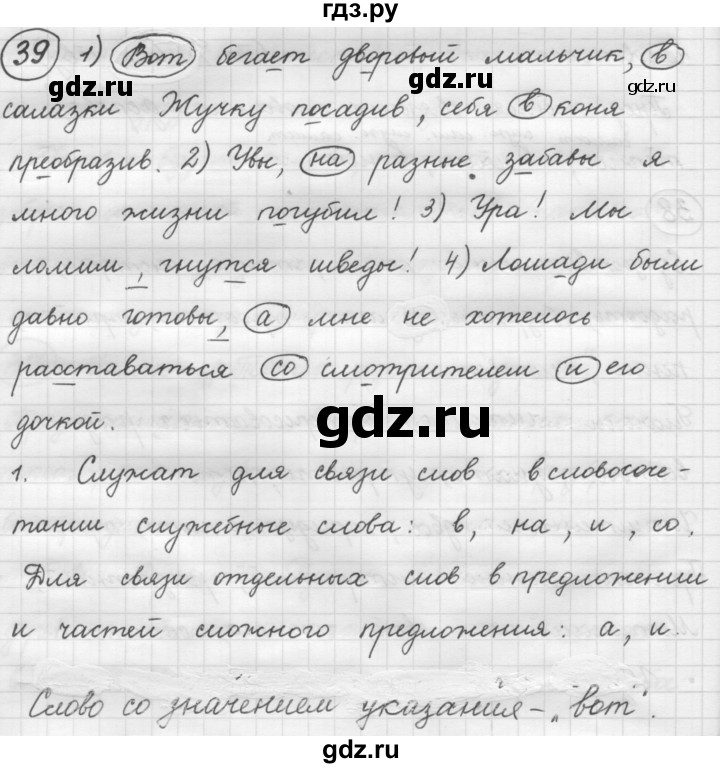 гдз.ру
39 1) Вот бегает дворовый мальчик, в
gdz.ru gdz.ru
салазки Жучку посадив, себя в коня
преобразив. 2) Увы, на разные забавы я
много жизни погубил! 3) Ура! Мы
ломим, гнутся шведы! 4) Лошади были
давно готовы, а мне не хотелось
расставаться со смотрителем и его
дочкой.
gdz.ru
1. Служат для связи слов в словосоче-
тании служебные слова: в, на, и, со.
Для связи отдельных слов в предложении
и частей сложного предложения: а, и.
Слово со значением указания - „вот".
gdz.ru